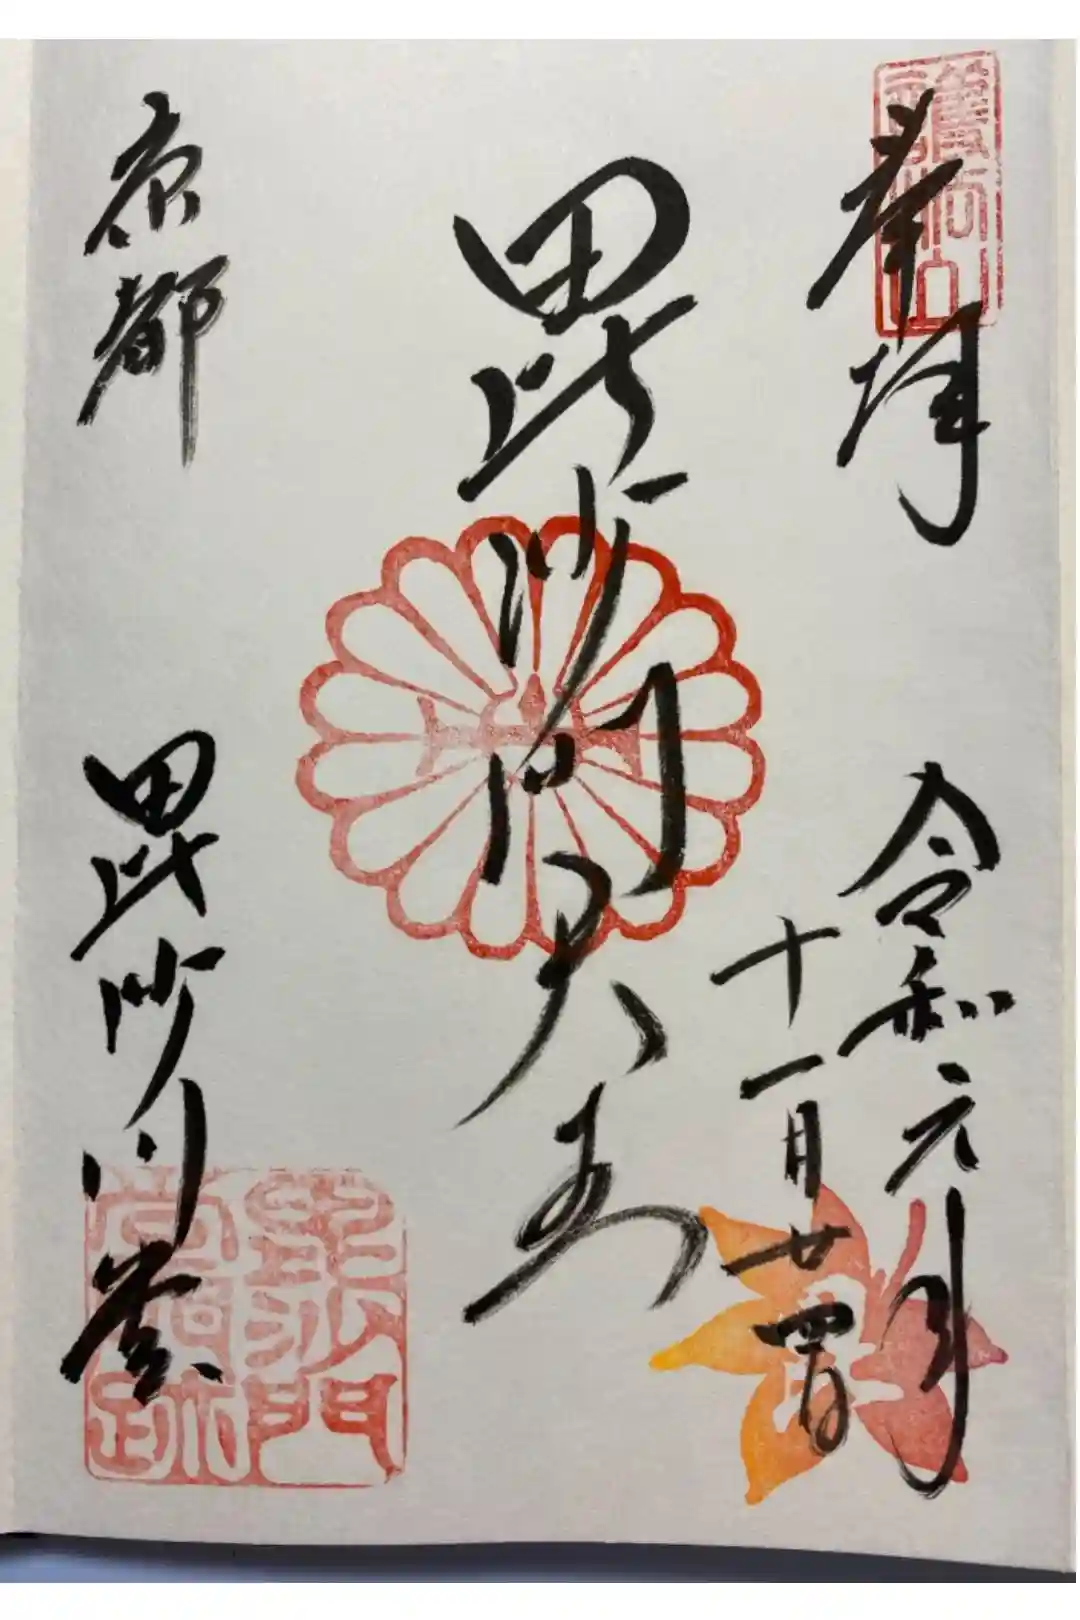 奉拝
令和元年
十一月廿四日
毘沙門天王
京都
毘沙門堂
毘沙門